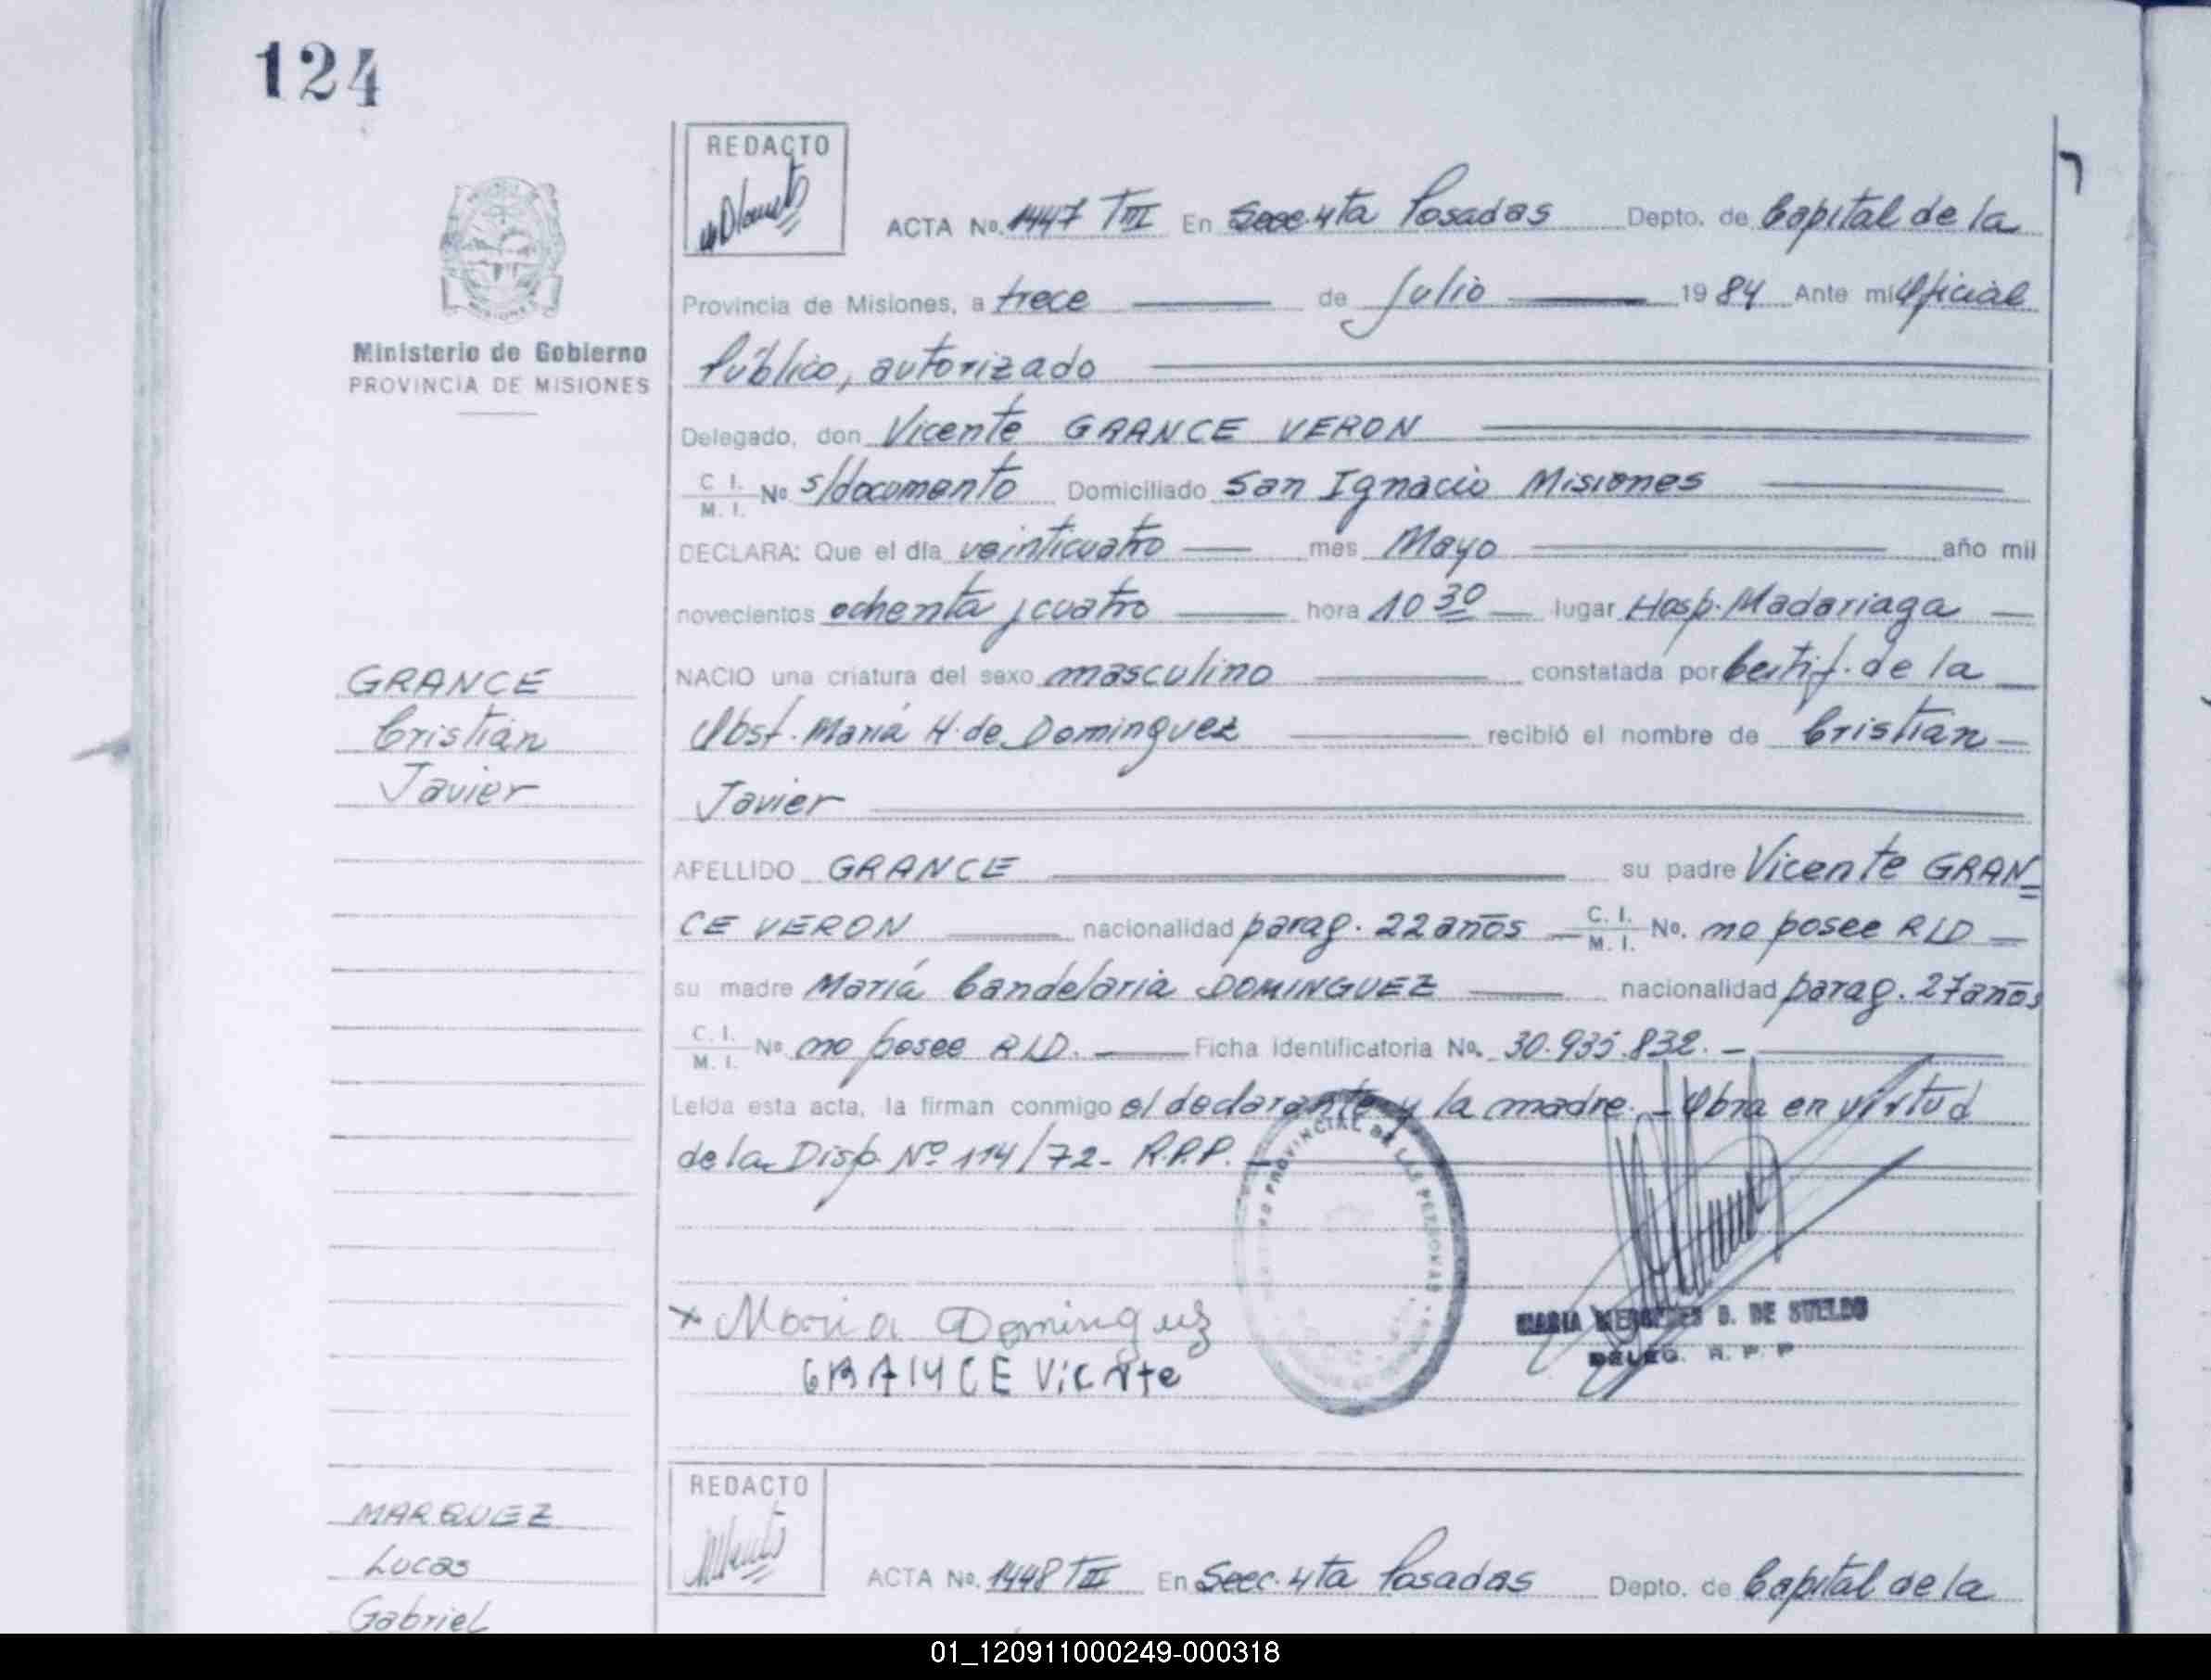 124
REDACTO
ACTA No. 1447 TIII En Secc. 4ta Posadas Depto. de Capital de la
Provincia de Misiones, a trece de Julio 1984 Ante mi Oficial
Público, autorizado
Ministerio de Gobierno
PROVINCIA DE MISIONES
Delegado, don Vicente GRANCE VERON
C. I. M. I. No s/documento Domiciliado San Ignacio Misiones
DECLARA: Que el día veinticuatro mes Mayo año mil
novecientos ochenta y cuatro hora 10 30 lugar Hosp. Madariaga
GRANCE
Cristian
Javier
NACIO una criatura del sexo masculino constatada por Certif. de la
Obst. María H. de Dominguez recibió el nombre de Cristian
Javier
APELLIDO GRANCE su padre Vicente GRAN=
CE VERON nacionalidad parag. 22 años C. I. M. I. No. no posee RLD
su madre María Candelaria DOMINGUEZ nacionalidad parag. 27 años
C. I. M. I. No no posee RLD. Ficha Identificatoria No. 30.935.832.-
Leída esta acta, la firman conmigo el declarante y la madre.- Obra en virtud
de la Disp. Nº 114/72- R.P.P.
PROVINCIAL DE LAS PERSONAS
x Maria Dominguez
GRANCE Vicente
MARIA MERCEDES B. DE SUELDO
DELEG. R. P. P
REDACTO
MARQUEZ
Lucas
Gabriel
ACTA No. 1448 TIII En Secc. 4ta Posadas Depto. de Capital de la
01_120911000249-000318